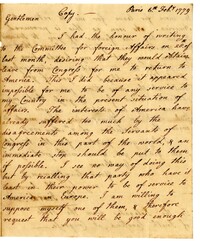 Copy — Paris 6th Feby. 1779
Gentlemen
I had the honour of writing
to the Committee for foreign Affairs on the
last month, desiring that they would obtain
leave from Congress for me to return to
America. This I did because it appeared
impossible for me to be of any service to
my Country in the present situation of
Affairs. The interests of America have
already suffered too much by the
disagreements among the Servants of
Congress in this part of the world, & an
immediate stop should be put to them
if possible. I see no way of doing this
but by recalling that party who have it
least in their power to be of service to
America in Europe. I am willing to
suppose myself one of them, & therefore
request that you will be good enough